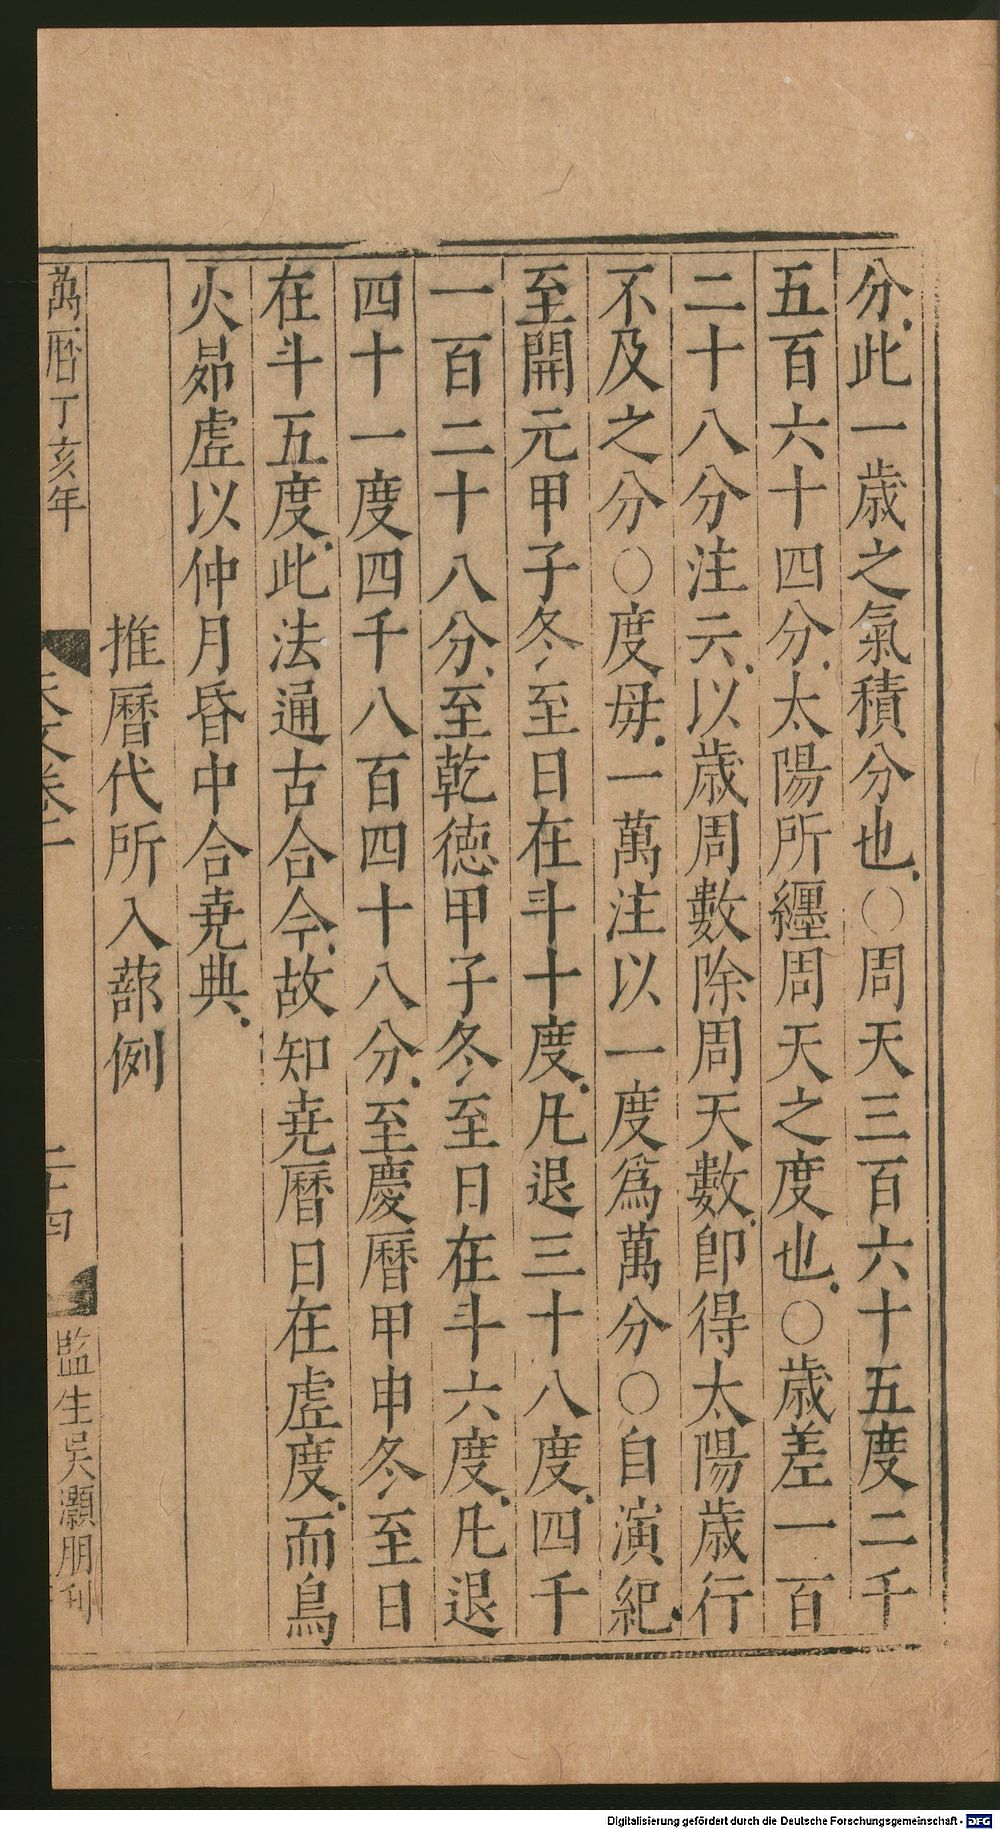 分此一歳之氣積分也○周天三百六十五度二千
五百六十四分太陽所纒周天之度也○歳差一百
二十八分注云以歳周數除周天數即得太陽歳行
不及之分○度毋一萬注以一度爲萬分○自演紀
至開元甲子冬至日在斗十度凡退三十八度四千
一百二十八分至乾德甲子冬至日在斗六度凡退
四十一度四千八百四十八分至慶曆甲申冬至日
在斗五度此法通古合今故知尭曆日在虛度而鳥
火昴虛以仲月昏中合尭典
推曆代所入蔀例
萬曆丁亥年
天文卷二
二十四
監生吳灝朋刊
Digitalisierung gefördert durch die Deutsche Forschungsgemeinschaft - DFG